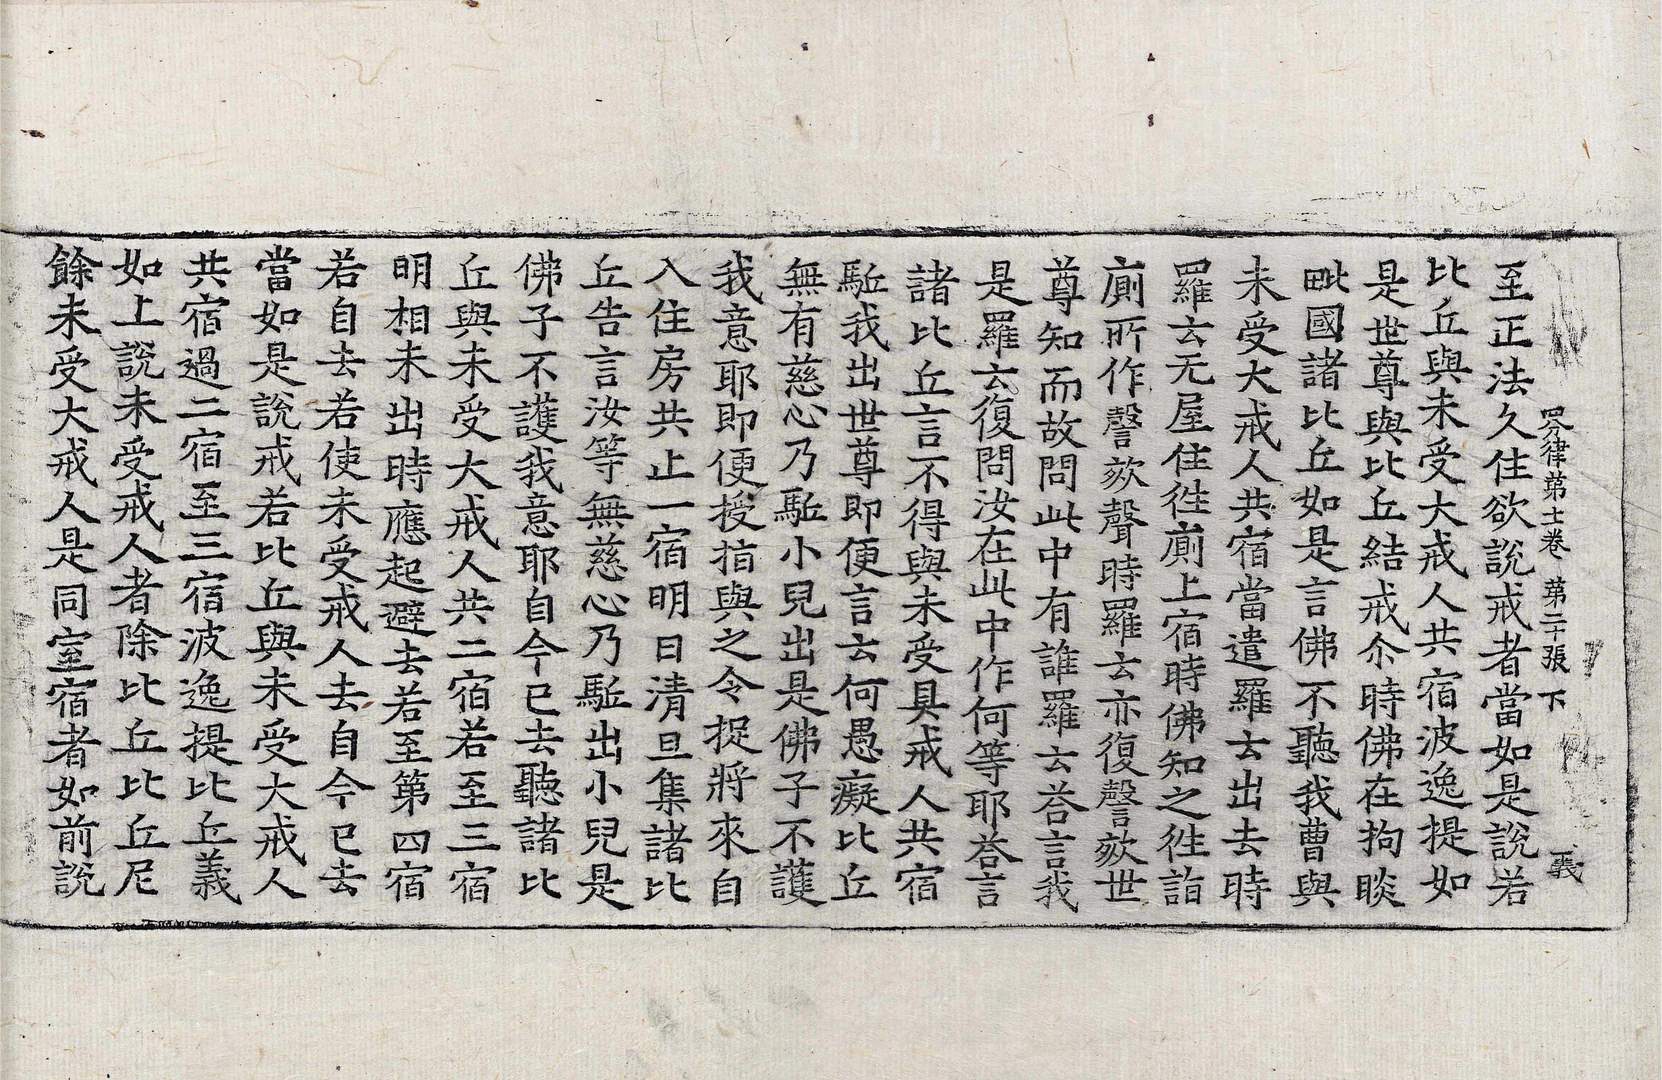 四分律第十一卷 第二十張 下 義
至正法久住欲說戒者當如是說若
比丘與未受大戒人共宿波逸提如
是世尊與比丘結戒尒時佛在拘睒
毗國諸比丘如是言佛不聽我曹與
未受大戒人共宿當遣羅云出去時
羅云无屋住徃廁上宿時佛知之徃詣
廁所作謦欬聲時羅云亦復謦欬世
尊知而故問此中有誰羅云荅言我
是羅云復問汝在此中作何等耶荅言
諸比丘言不得與未受具戒人共宿
駈我出世尊即便言云何愚癡比丘
無有慈心乃駈小兒出是佛子不護
我意耶即便授指與之令捉將來自
入住房共止一宿明日清旦集諸比
丘告言汝等無慈心乃駈出小兒是
佛子不護我意耶自今已去聽諸比
丘與未受大戒人共二宿若至三宿
明相未出時應起避去若至第四宿
若自去若使未受戒人去自今已去
當如是說戒若比丘與未受大戒人
共宿過二宿至三宿波逸提比丘義
如上說未受戒人者除比丘比丘尼
餘未受大戒人是同室宿者如前說